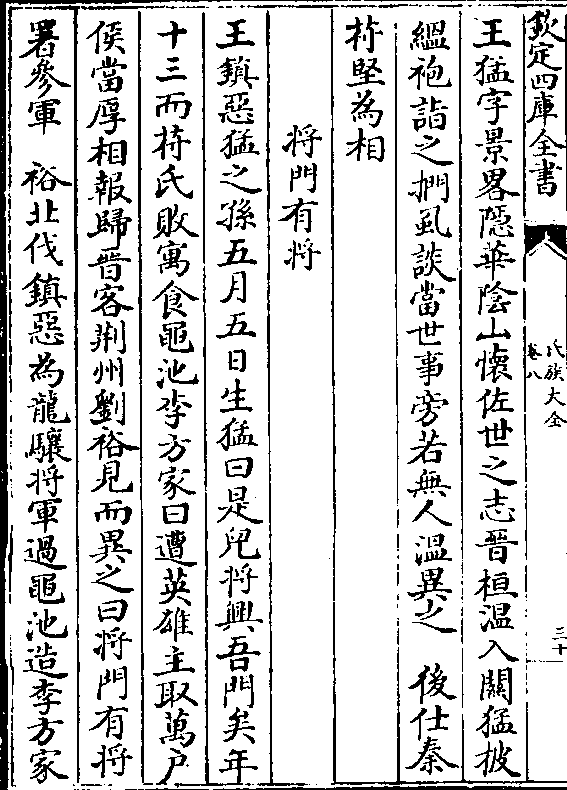 欽定四庫全書
氏族大全
卷八
三十
王猛字景畧隱華陰山懷佐世之志晉桓溫入關猛披
縕袍詣之捫虱談當世事旁若無人溫異之　後仕秦
苻堅為相
將門有將
王鎮惡猛之孫五月五日生猛曰是兒將興吾門矣年
十三而苻氏敗寓食黽池李方家曰遭英雄主取萬戸
侯當厚相報歸晉客荆州劉裕見而異之曰將門有將
署參軍　裕北伐鎮惡為龍驤將軍過黽池造李方家